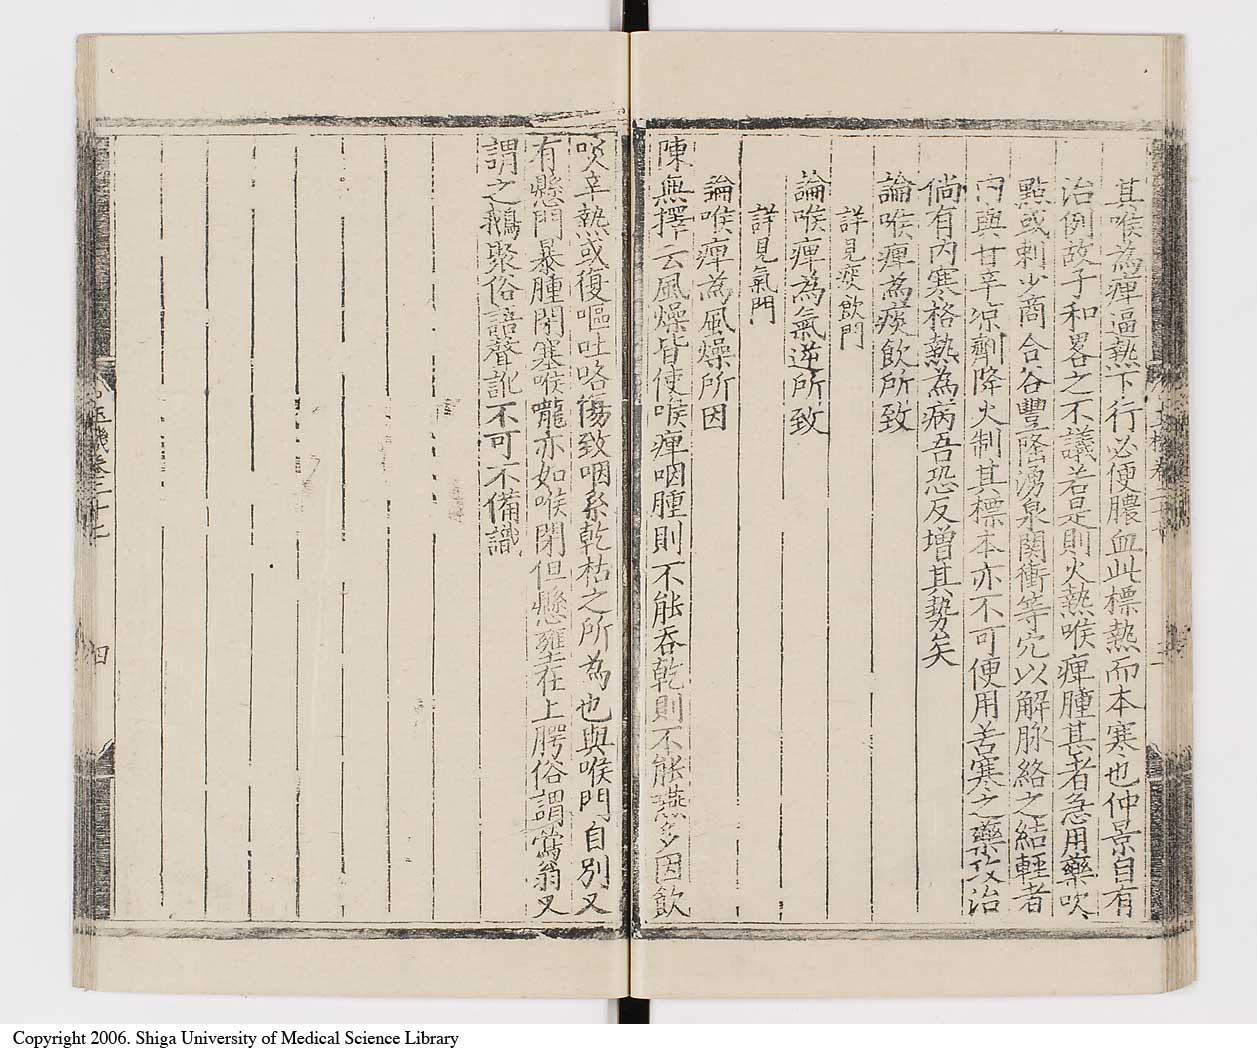 其喉為痺逼熱下行必便膿血此標熱而本寒也仲景自有
治例故子和畧之不議若是則火熱喉痺腫甚者急用藥吹
點或刺少商合谷豐隆湧泉関衝等穴以解脉絡之結輕者
內與甘辛凉劑降火制其標本亦不可便用苦寒之藥攻治
倘有內寒格熱為病吾恐反增其勢矣
論喉痺為痰飲所致
詳見痰飲門
論喉痺為氣逆所致
詳見氣門
論喉痺為風燥所因
陳無擇云風燥皆使喉痺咽腫則不能吞乾則不能嚥多因飲
啖辛熱或復嘔吐咯傷致咽系乾枯之所為也與喉門自別又
有懸門暴腫閉塞喉嚨亦如喉閉但懸雍在上腭俗謂鶯翁又
謂之鵝聚俗語聲訛不可不備識
玉機卷三十七
四
Copyright 2006. Shiga University of Medical Science Library